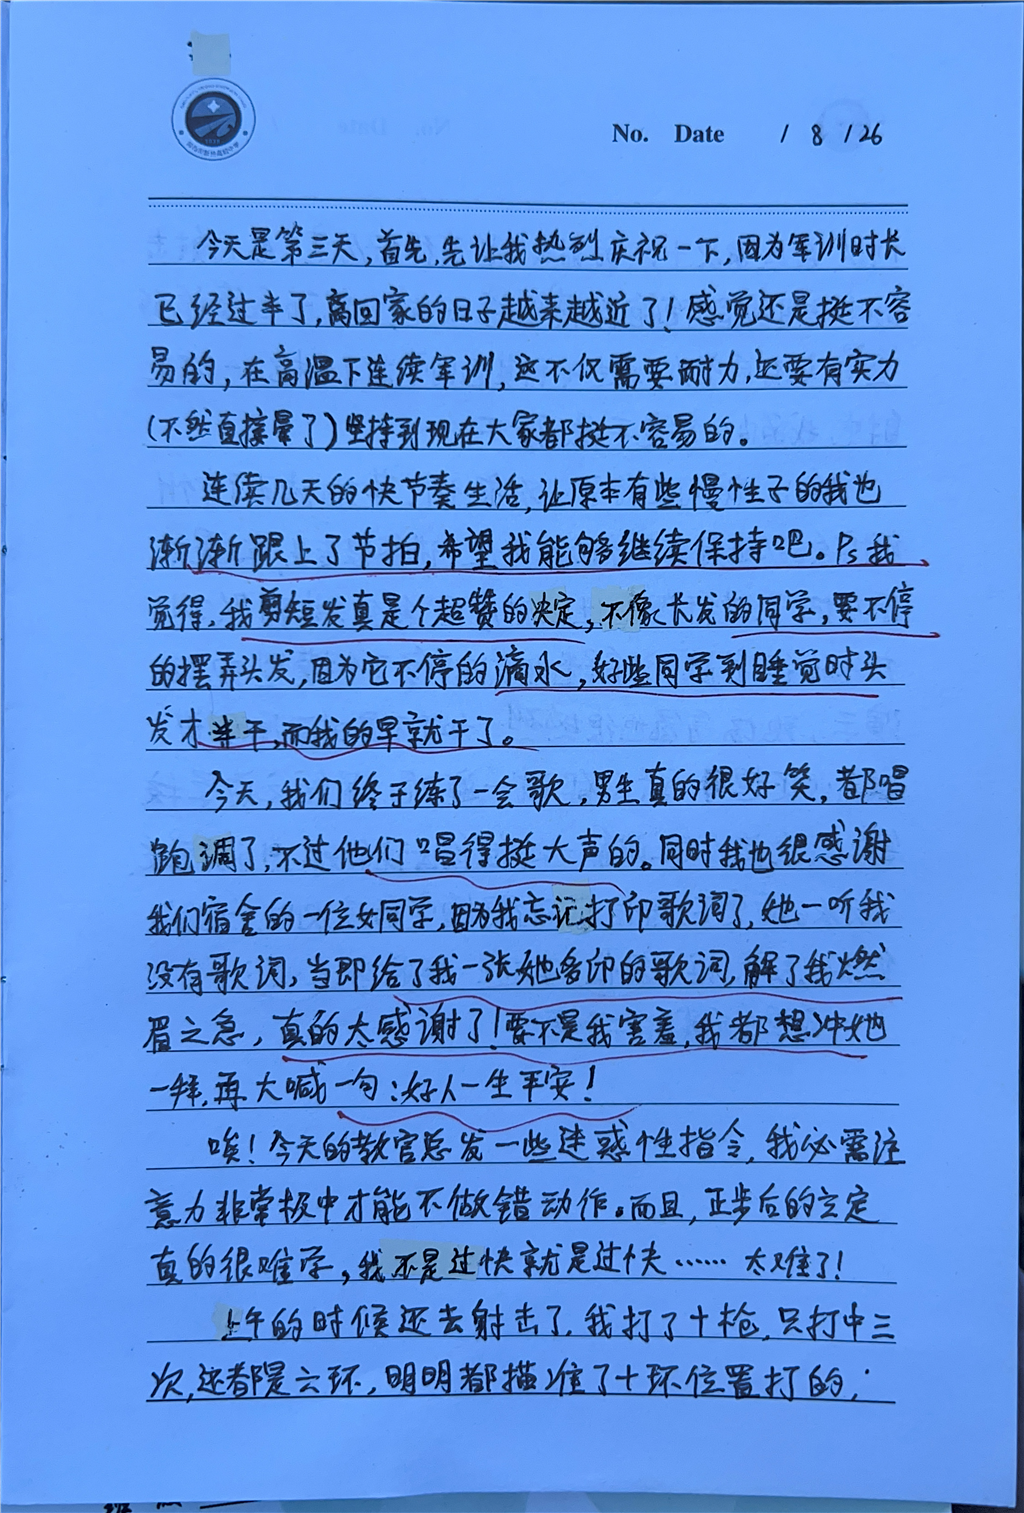 No. Date / 8 / 26
今天是第三天,首先,先让我热烈庆祝一下,因为军训时长
已经过半了,离回家的日子越来越近了!感觉还是挺不容
易的,在高温下连续军训,这不仅需要耐力,还要有实力
(不然直接晕了)坚持到现在大家都挺不容易的。
连续几天的快节奏生活,让原本有些慢性子的我也
渐渐跟上了节拍,希望我能够继续保持吧。Ps我
觉得,我剪短发真是个超赞的决定,不像长发的同学,要不停
的摆弄头发,因为它不停的滴水,好些同学到睡觉时头
发才半干,而我的早就干了。
今天,我们终于练了一会歌,男生真的很好笑,都唱
跑调了,不过他们唱得挺大声的。同时我也很感谢
我们宿舍的一位女同学,因为我忘记打印歌词了,她一听我
没有歌词,当即给了我一张她多印的歌词,解了我燃
眉之急,真的太感谢了!要不是我害羞,我都想冲她
一拜,再大喊一句:好人一生平安!
唉!今天的教官总发一些迷惑性指令,我必需注
意力非常极中才能不做错动作。而且,正步后的立定
真的很难学,我不是过快就是过快……太难了!
上午的时候还去射击了,我打了十枪,只打中三
次,还都是六环,明明都描准了十环位置打的,